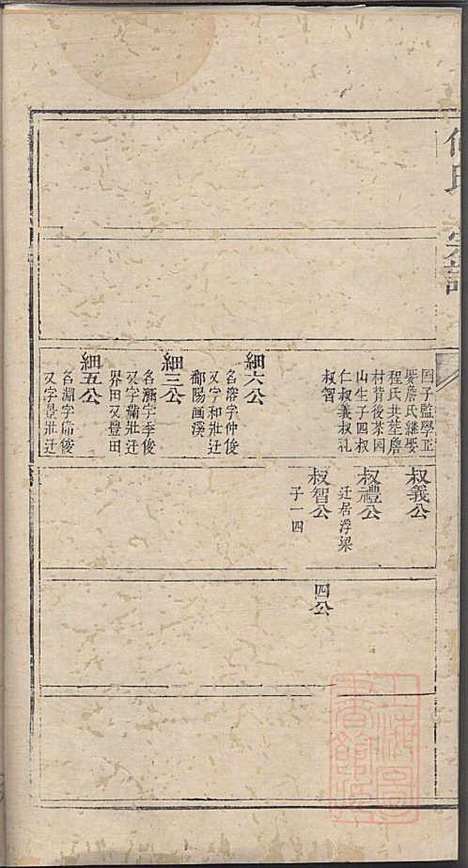 國子監學正
娶詹氏繼娶
程氏共塟詹
村背後茶園
山生子四叔
仁叔義叔礼
叔智
細六公
名溶字仲俊
又字和壯迁
鄱陽画溪
細三公
名滿字季俊
又字蒲壯迁
界田又豊田
細五公
名湖字庙俊
又字景壯迁
叔義公
叔禮公
迁居浮梁
叔智公
子一四
四公
氏
宗譜